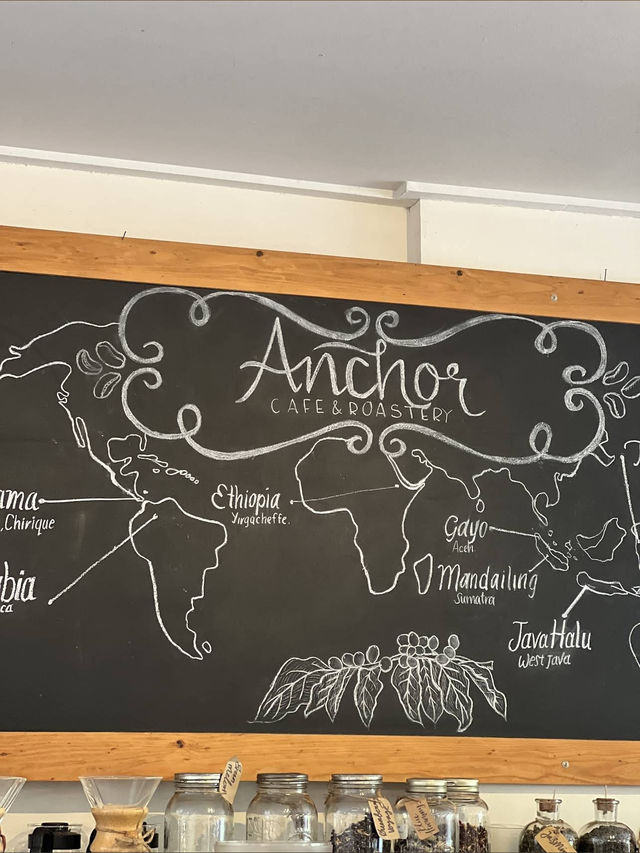 Anchor
CAFE & ROASTERY
ama
, Chirique
bia
ca
Ethiopia
Yirgacheffe.
Gayo
Aceh
Mandailing
Sumatra
Java Halu
West Java